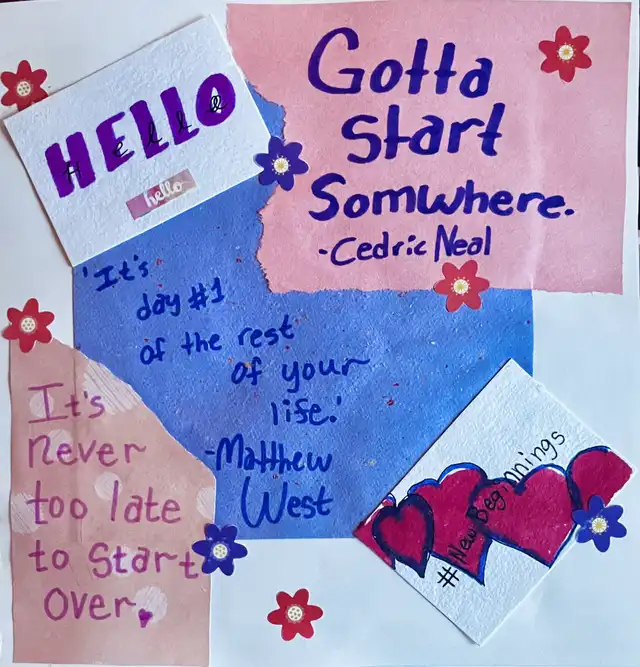 HELLO
Hello
hello
Gotta
start
Somwhere.
-Cedric Neal
'It's
day #1
of the rest
of your
life.'
-Matthew
West
It's
never
too late
to start
over.
#New Beginnings